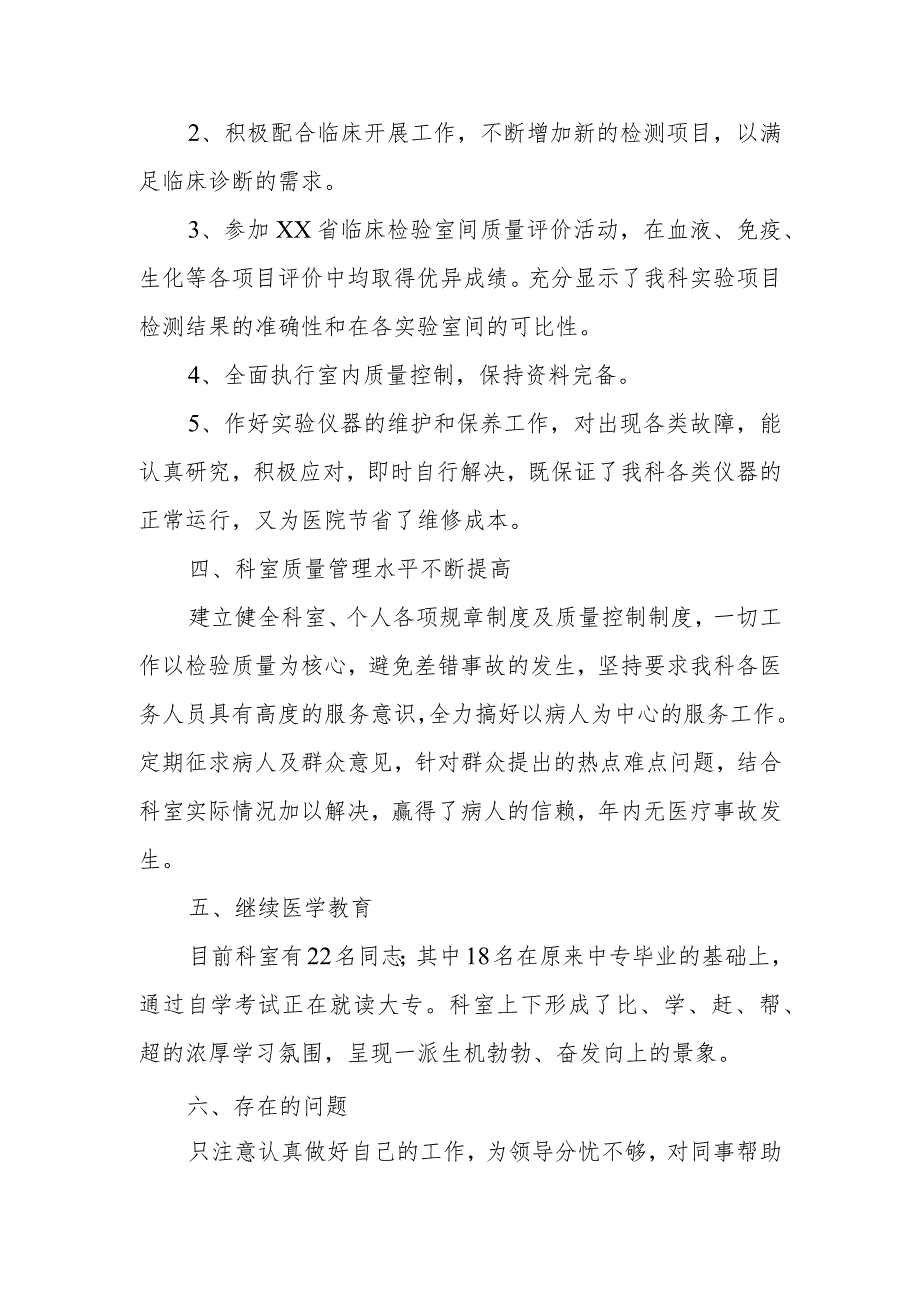 2、积极配合临床开展工作，不断增加新的检测项目，以满
足临床诊断的需求。
3、参加 XX 省临床检验室间质量评价活动，在血液、免疫、
生化等各项目评价中均取得优异成绩。充分显示了我科实验项目
检测结果的准确性和在各实验室间的可比性。
4、全面执行室内质量控制，保持资料完备。
5、作好实验仪器的维护和保养工作，对出现各类故障，能
认真研究，积极应对，即时自行解决，既保证了我科各类仪器的
正常运行，又为医院节省了维修成本。
四、科室质量管理水平不断提高
建立健全科室、个人各项规章制度及质量控制制度，一切工
作以检验质量为核心，避免差错事故的发生，坚持要求我科各医
务人员具有高度的服务意识，全力搞好以病人为中心的服务工作。
定期征求病人及群众意见，针对群众提出的热点难点问题，结合
科室实际情况加以解决，赢得了病人的信赖，年内无医疗事故发
生。
五、继续医学教育
目前科室有22名同志；其中18名在原来中专毕业的基础上，
通过自学考试正在就读大专。科室上下形成了比、学、赶、帮、
超的浓厚学习氛围，呈现一派生机勃勃、奋发向上的景象。
六、存在的问题
只注意认真做好自己的工作，为领导分忧不够，对同事帮助